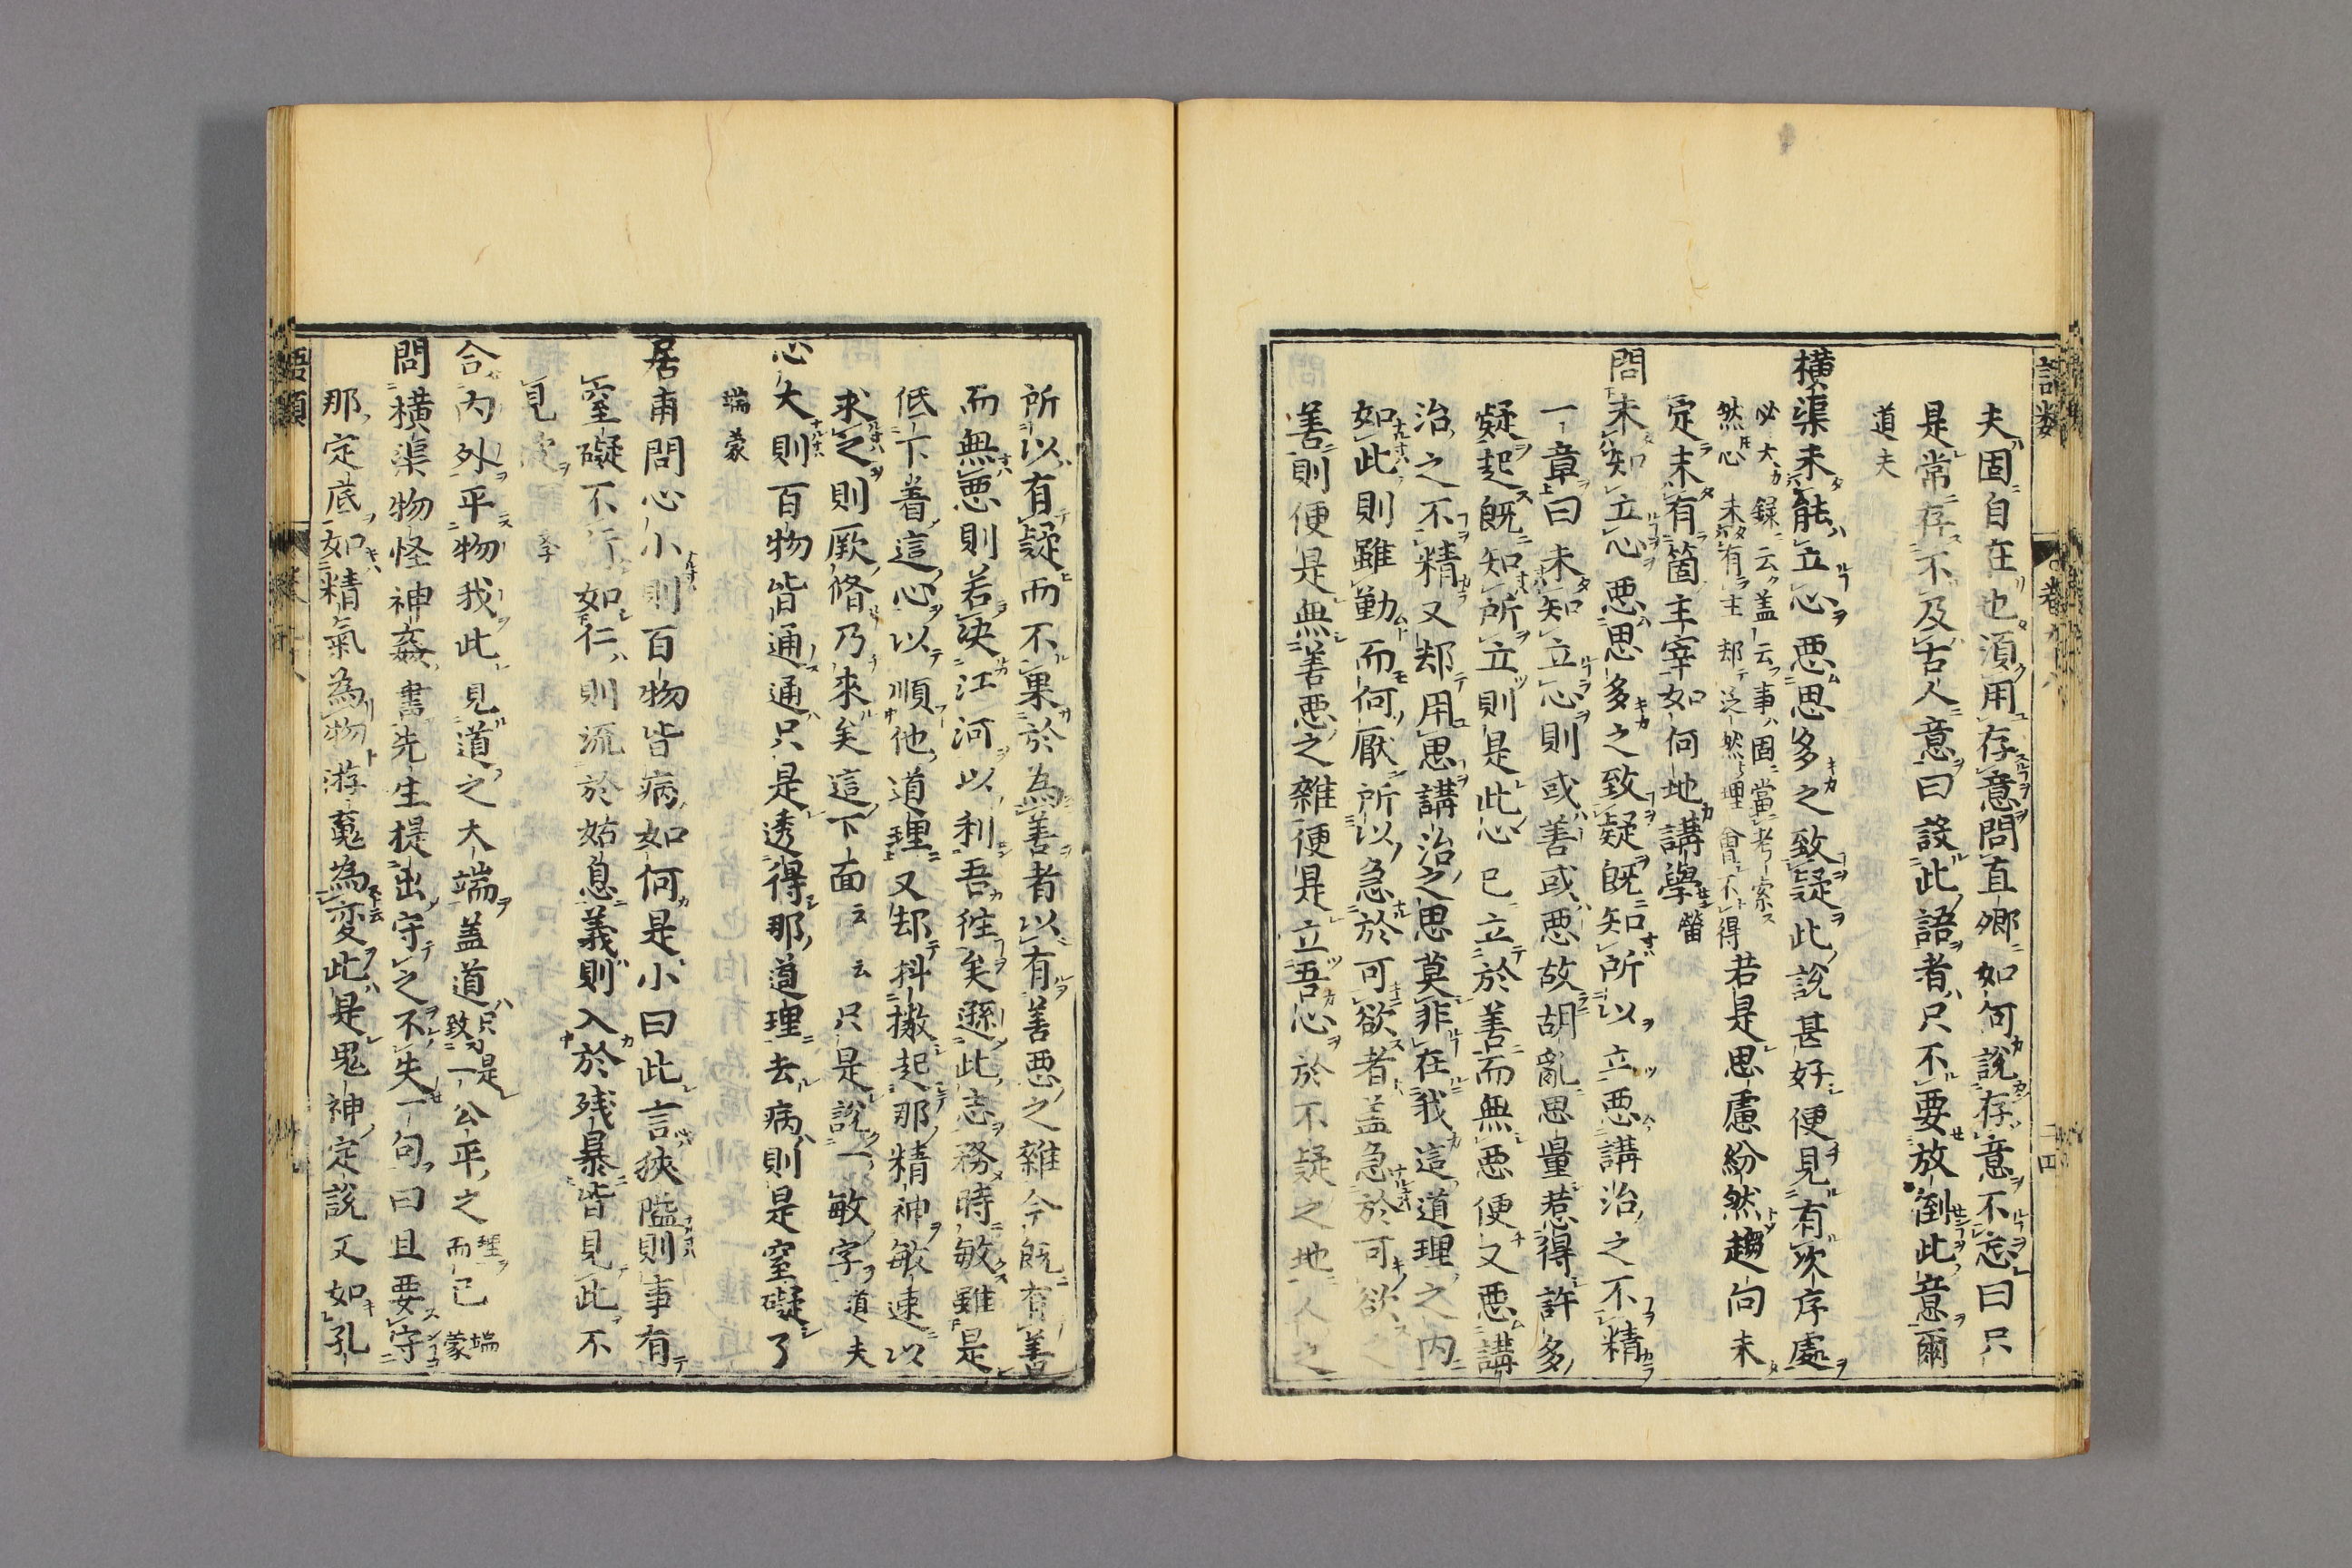 夫固自在也須用存意問直卿如何說存意不忘曰只
是常存不及古人意曰設此語者只不要放倒此意爾
道夫
橫渠未能立心惡思多之致疑此說甚好便見有次序處
必大錄云蓋云事固當考索
然心未有主却泛然理會不得若是思慮紛然趨向未
定未有箇主宰如何地講學 㽦
問未知立心惡思多之致疑既知所以立惡講治之不精
一章曰未知立心則或善或惡故胡亂思量惹得許多
疑起既知所立則是此心已立於善而無惡便又惡講
治之不精又却用思講治之思莫非在我這道理之内
如此則雖勤而何厭所以急於可欲者盖急於可欲之
善則便是無善惡之雜便是立吾心於不疑之地人之
所以有疑而不果於為善者以有善惡之雜今既有善
而無惡則若決江河以利吾往矣遜此志務時敏雖是
低下着這心以順他道理又却抖擻起那精神敏速以
求之則厥脩乃來矣這下面云云只是說一敏字 道夫
心大則百物皆通通只是透得那道理去病則是窒礙了
端蒙
居甫問心小則百物皆病如何是小曰此言狹隘則事有
窒礙不行如仁則流於姑息義則入於殘暴皆見此不
見彼 可學
合内外平物我此見道之大端盖道只是致一公平之理而已 端蒙
問橫渠物怪神姦書先生提出守之不失一句曰且要守
那定底如精氣為物游䰟為変此是鬼神定說又如孔
語類